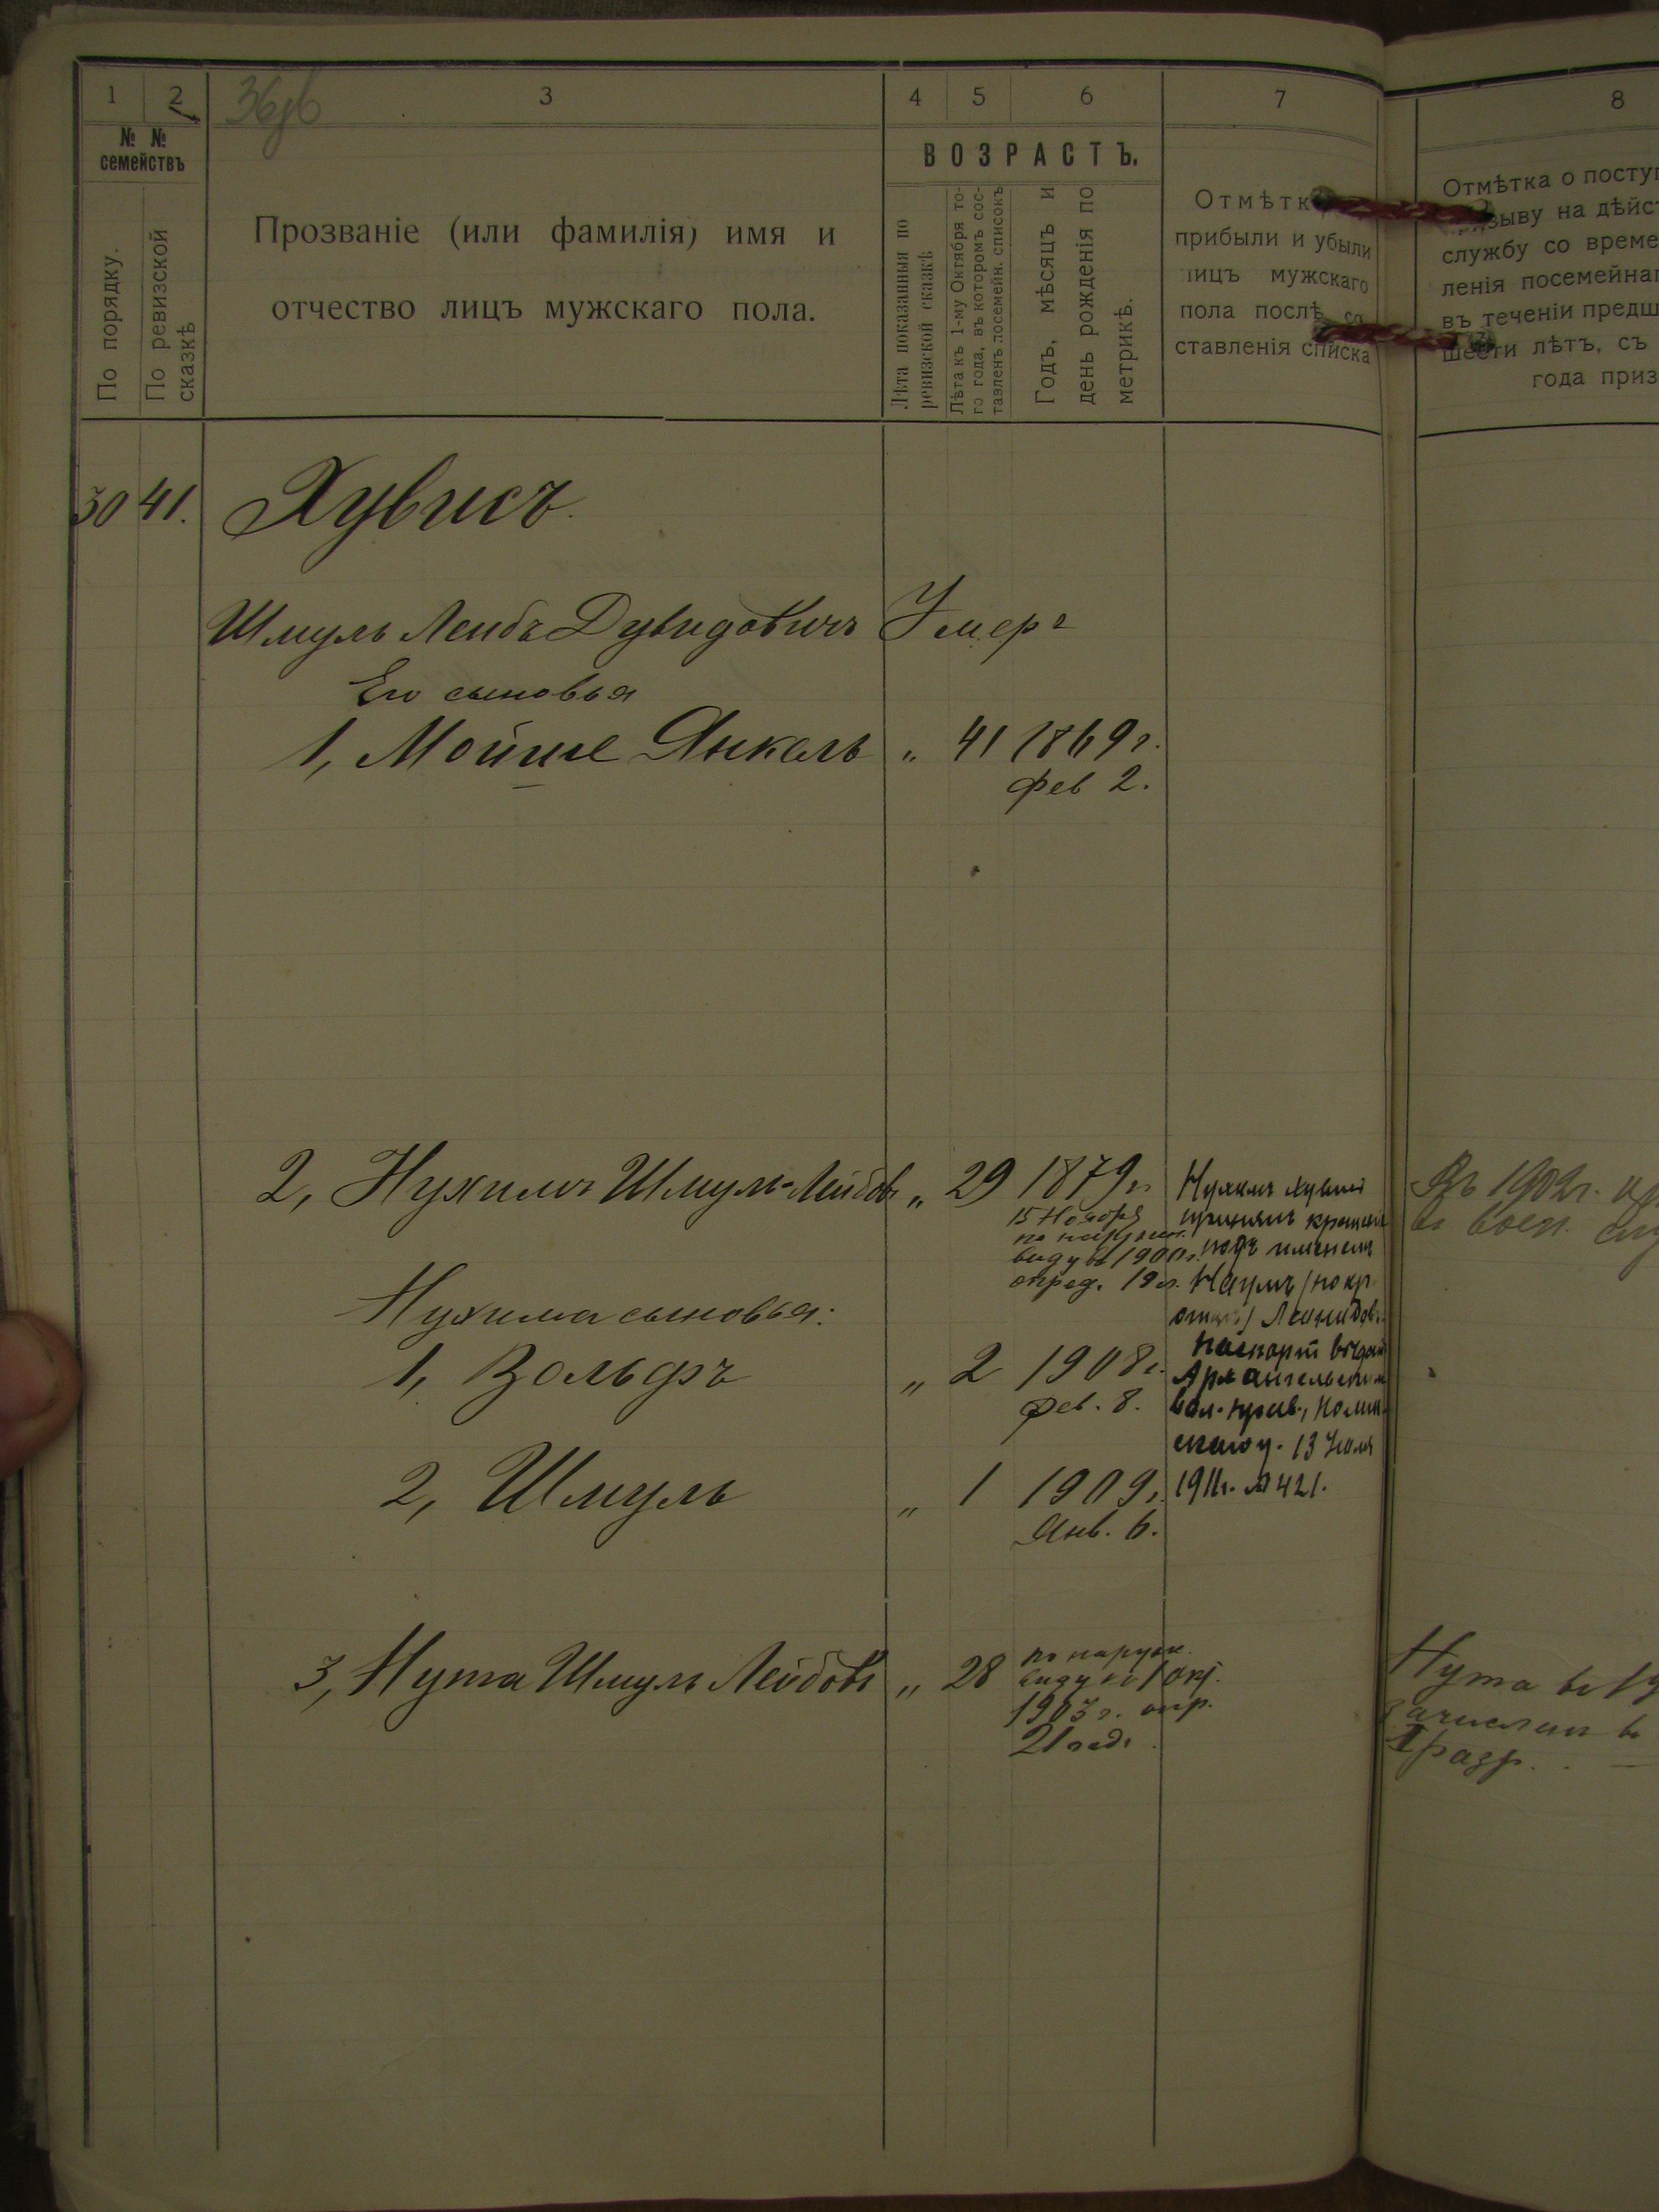 1 2 3 4 5 6 7 8
№ № семействъ
По порядку.
По ревизской сказкѣ
Прозваніе (или фамилія) имя и
отчество лицъ мужскаго пола.
ВОЗРАСТЪ.
Лѣта показанныя по
ревизской сказкѣ
Лѣта къ 1-му Октября то-
го года, въ которомъ сос-
тавленъ посемейн. списокъ
Годъ, мѣсяцъ и
день рожденія по
метрикѣ.
Отмѣтк
прибыли и убыли
лицъ мужскаго
пола послѣ со
ставленія списка
Отмѣтка о посту
зыву на дѣйс
службу со време
ленія посемейна
въ теченіи предш
шести лѣтъ, съ
года приз
30 41. Хувисъ.
Шмуль Лейбъ Дувидовичъ Умеръ
Его сыновья
1, Мойше Янкель „ 41 1869 г.
Фев 2.
2, Нухимъ Шмуль-Лейбов „ 29 1879 г.
15 Ноября
по наружн.
виду въ 1900 г.
опред. 19 л.
Нухимъ Хувисъ
принялъ крещен
подъ именемъ
Наумъ (по кр
отцу) Леонидов.
паспорт выдан
Архангельским
вол. прав.,
уг. 13 Июля
1911 г. № 421.
Въ 1902 г. пр
въ воен. слу
Нухима сыновья:
1, Вольфъ „ 2 1908 г.
Фев. 8.
2, Шмуль „ 1 1909 г.
Янв. 6.
3, Нута Шмуль Лейбовъ „ 28 по наружн.
виду къ 1 окт.
1903 г. опр.
21 год.
Нута въ 19
зачислен в
разр.